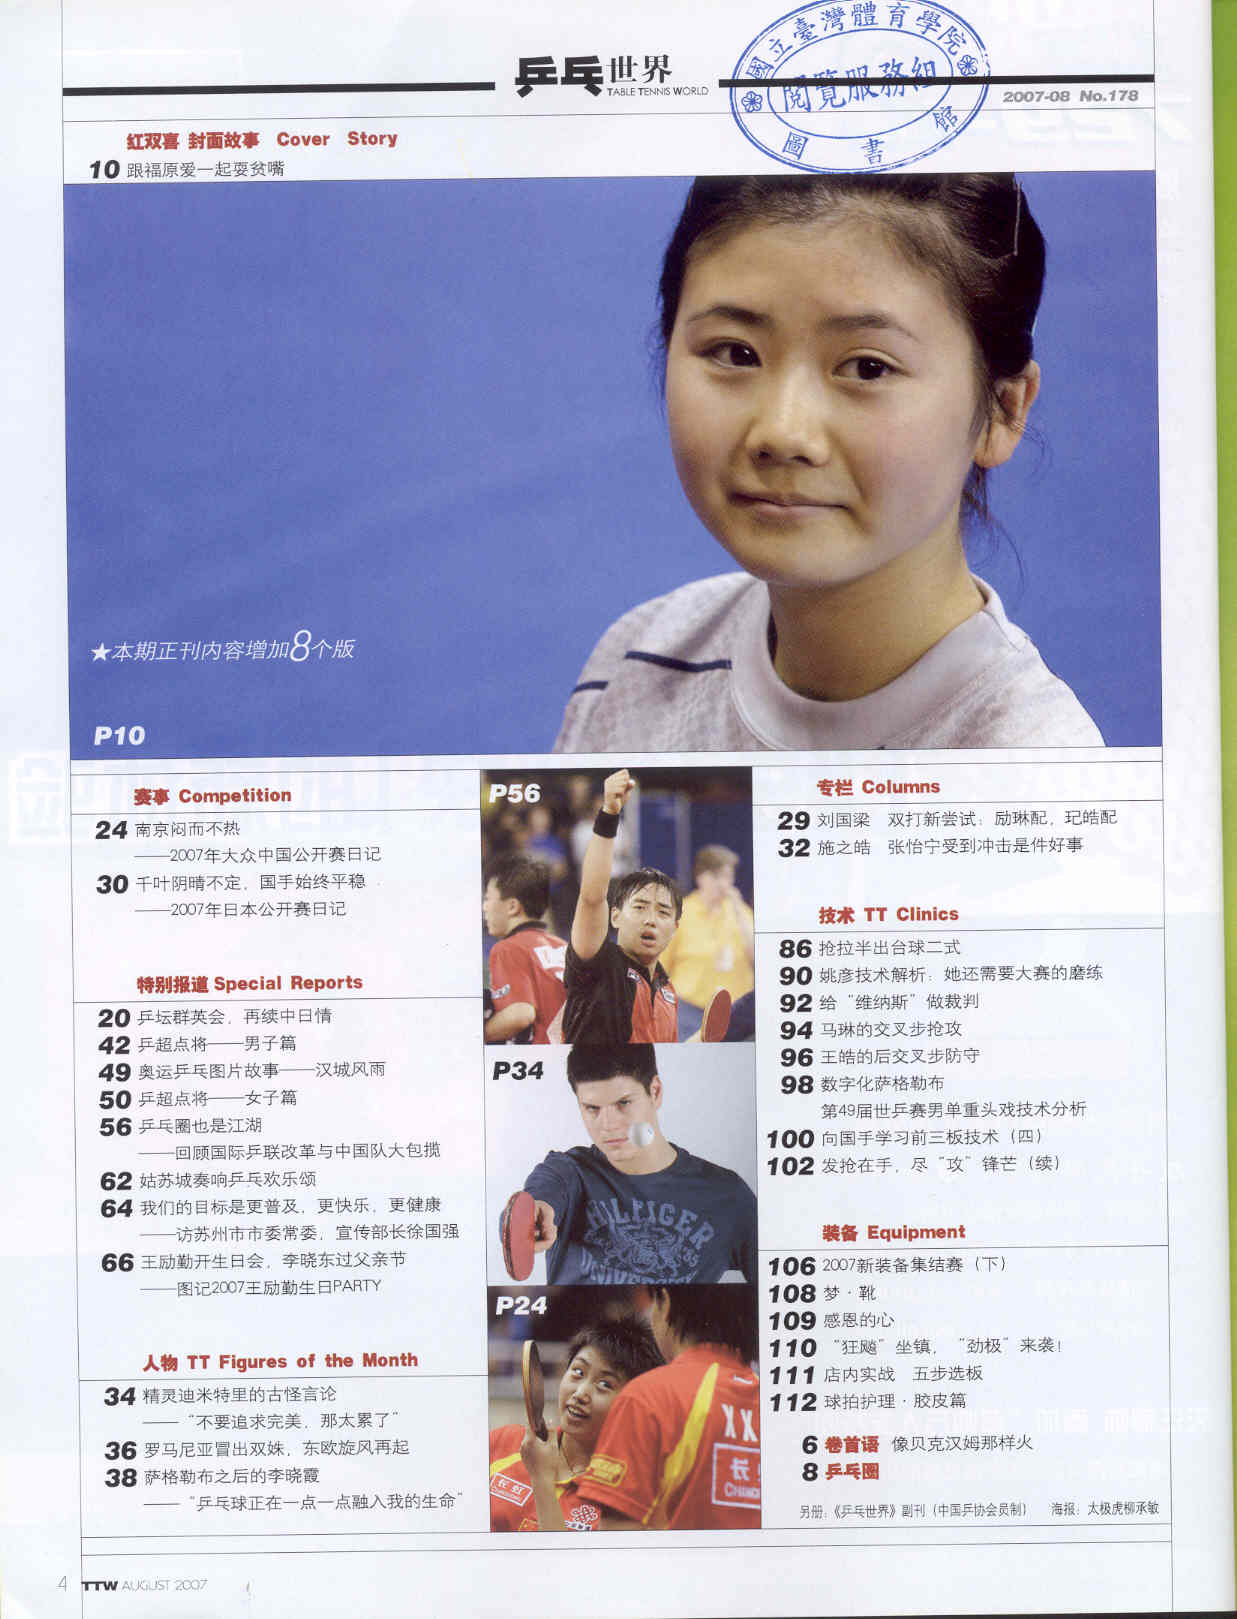 乒乓世界
TABLE TENNIS WORLD
國立臺灣體育學院
閱覽服務組
圖書館
2007-08 No.178
红双喜 封面故事 Cover Story
10 跟福原爱一起耍贫嘴
★本期正刊内容增加8个版
P10
赛事 Competition
24 南京闷而不热
——2007年大众中国公开赛日记
30 千叶阴晴不定，国手始终平稳
——2007年日本公开赛日记
特别报道 Special Reports
20 乒坛群英会，再续中日情
42 乒超点将——男子篇
49 奥运乒乓图片故事——汉城风雨
50 乒超点将——女子篇
56 乒乓圈也是江湖
——回顾国际乒联改革与中国队大包揽
62 姑苏城奏响乒乓欢乐颂
64 我们的目标是更普及，更快乐，更健康
——访苏州市市委常委，宣传部长徐国强
66 王励勤开生日会，李晓东过父亲节
——图记2007王励勤生日PARTY
人物 TT Figures of the Month
34 精灵迪米特里的古怪言论
——“不要追求完美，那太累了”
36 罗马尼亚冒出双姝，东欧旋风再起
38 萨格勒布之后的李晓霞
——“乒乓球正在一点一点融入我的生命”
P56
P34
HILFIGER
UNIVERSITY
P24
长虹
专栏 Columns
29 刘国梁 双打新尝试：励琳配，玘皓配
32 施之皓 张怡宁受到冲击是件好事
技术 TT Clinics
86 抢拉半出台球二式
90 姚彦技术解析：她还需要大赛的磨练
92 给“维纳斯”做裁判
94 马琳的交叉步抢攻
96 王皓的后交叉步防守
98 数字化萨格勒布
第49届世乒赛男单重头戏技术分析
100 向国手学习前三板技术（四）
102 发抢在手，尽“攻”锋芒（续）
装备 Equipment
106 2007新装备集结赛（下）
108 梦·靴
109 感恩的心
110 “狂飚”坐镇，“劲极”来袭！
111 店内实战 五步选板
112 球拍护理·胶皮篇
6 卷首语 像贝克汉姆那样火
8 乒乓圈
另册：《乒乓世界》副刊（中国乒协会员制） 海报：太极虎柳承敏
4 TTW AUGUST 2007